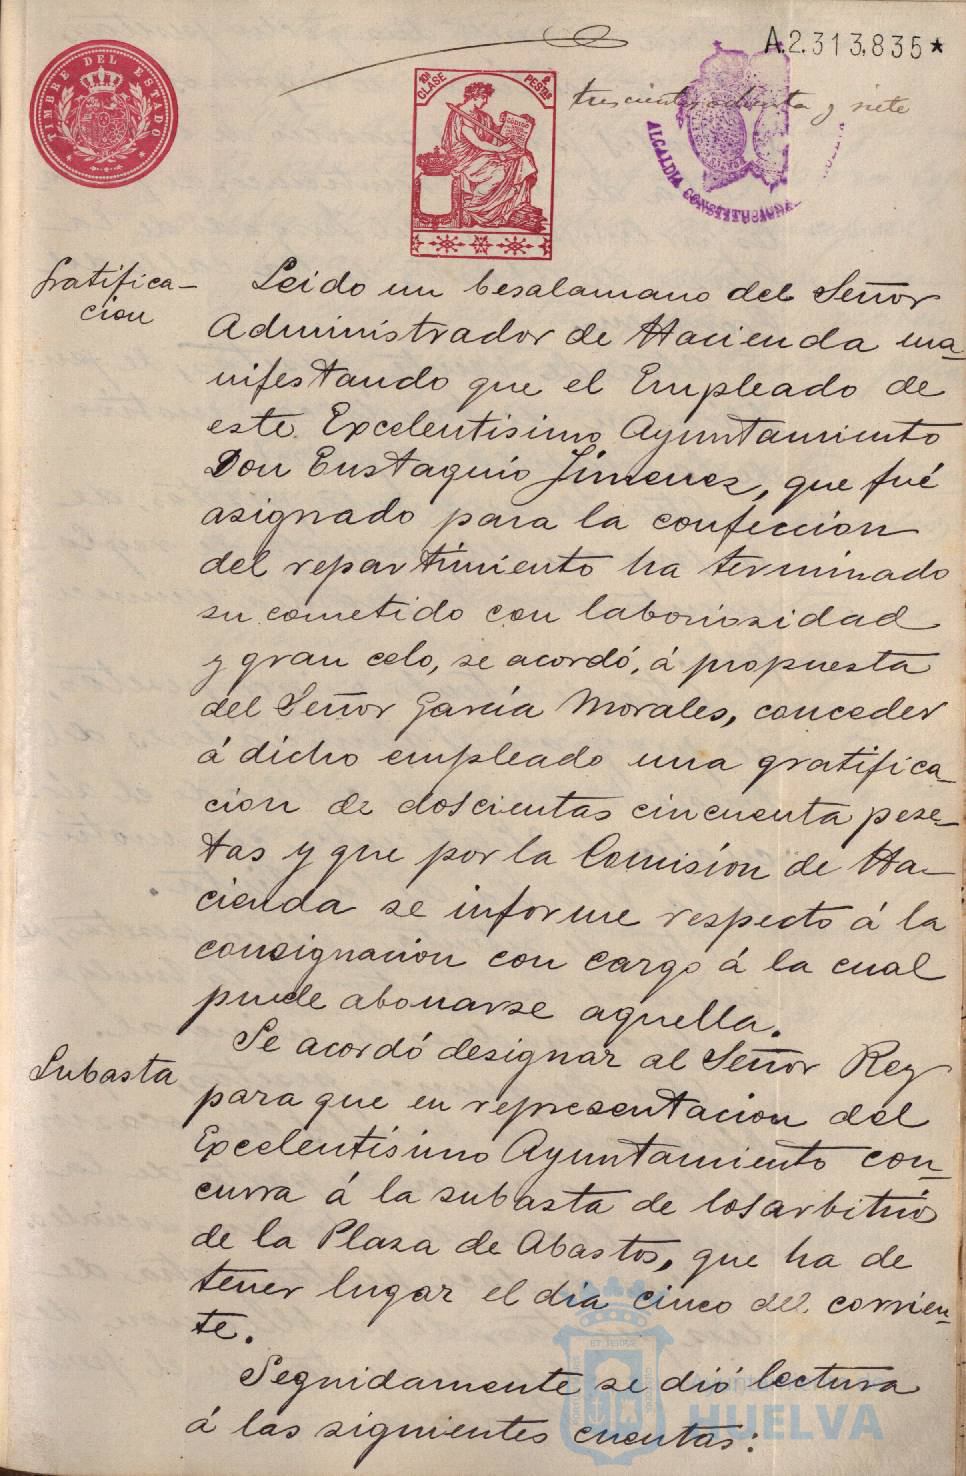 A.2.313,835★
TIMBRE DEL ESTADO
10ª CLASE
2 PESTAS
trescientos ochenta y siete
ALCALDIA
Gratifica-
cion
Leido un besalamano del Señor
Administrador de Hacienda ma-
nifestando que el Empleado de
este Excelentisimo Ayuntamiento
Don Eustaquio Jimenez, que fué
asignado para la confeccion
del repartimiento ha terminado
su cometido con laboriosidad
y gran celo, se acordó, á propuesta
del Señor García Morales, conceder
á dicho empleado una gratifica-
cion de doscientas cincuenta pese-
tas y que por la Comisión de Ha-
cienda se informe respecto á la
consignacion con cargo á la cual
puede abonarse aquella.
Subasta
Se acordó designar al Señor Rey
para que en representacion del
Excelentisimo Ayuntamiento con-
curra á la subasta de los arbitrios
de la Plaza de Abastos, que ha de
tener lugar el dia cinco del corrien-
te.
Seguidamente se dió lectura
á las siguientes cuentas:
HUELVA